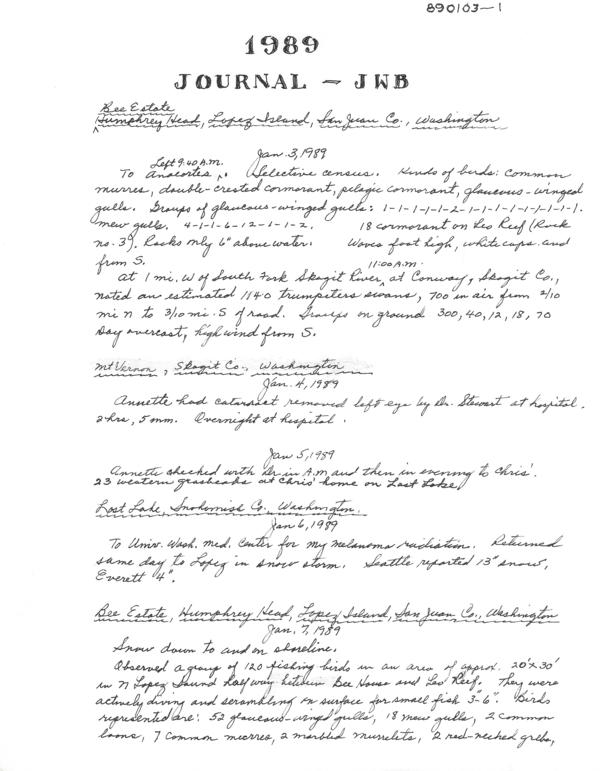 890103-1
1989
JOURNAL - JWB
Bee Estate
Humphrey Head, Lopez Island, San Juan Co., Washington
Jan. 3, 1989
Left 9:40 A.M.
To Anacortes. Selective census. Kinds of birds: Common
murres, double-crested cormorant, pelagic cormorant, glaucous-winged
gulls. Groups of glaucous-winged gulls: 1-1-1-1-1-2-1-1-1-1-1-1-1-1.
mew gulls. 4-1-1-6-12-1-1-2. 18 cormorant on Leo Reef (Rock
no. 3). Rocks only 6" above water. Waves foot high, white caps and
from S.
11:00 A.M.
At 1 mi. W of South Fork Skagit River, at Conway, Skagit Co.,
noted an estimated 1140 trumpeters swans, 700 in air from 2/10
mi N to 3/10 mi. S of road. Groups on ground 300, 40, 12, 18, 70
Day overcast, high wind from S.
Mt Vernon, Skagit Co., Washington
Jan. 4, 1989
Annette had cataract removed left eye by Dr. Stewart at hospital.
2 hrs, 5 mm. Overnight at hospital.
Jan 5, 1989
Annette checked with Dr in A.M and then in evening to Chris'.
23 western grosbeaks at Chris' home on Lost Lake,
Lost Lake, Snohomish Co., Washington.
Jan 6, 1989
To Univ. Wash. Med. Center for my melanoma radiation. Returned
same day to Lopez in snow storm. Seattle reported 13" snow,
Everett 4".
Bee Estate, Humphrey Head, Lopez Island, San Juan Co., Washington
Jan. 7, 1989
Snow down to and on shoreline.
Observed a group of 120 fishing birds in an area of approx. 20'x30'
in N Lopez Sound half way between Bee House and Leo Reef. They were
actively diving and scrambling on surface for small fish 3"-6". Birds
represented are: 52 glaucous-winged gulls, 18 mew gulls, 2 common
loons, 7 common murres, 2 marbled murrelets, 2 red-necked grebes,